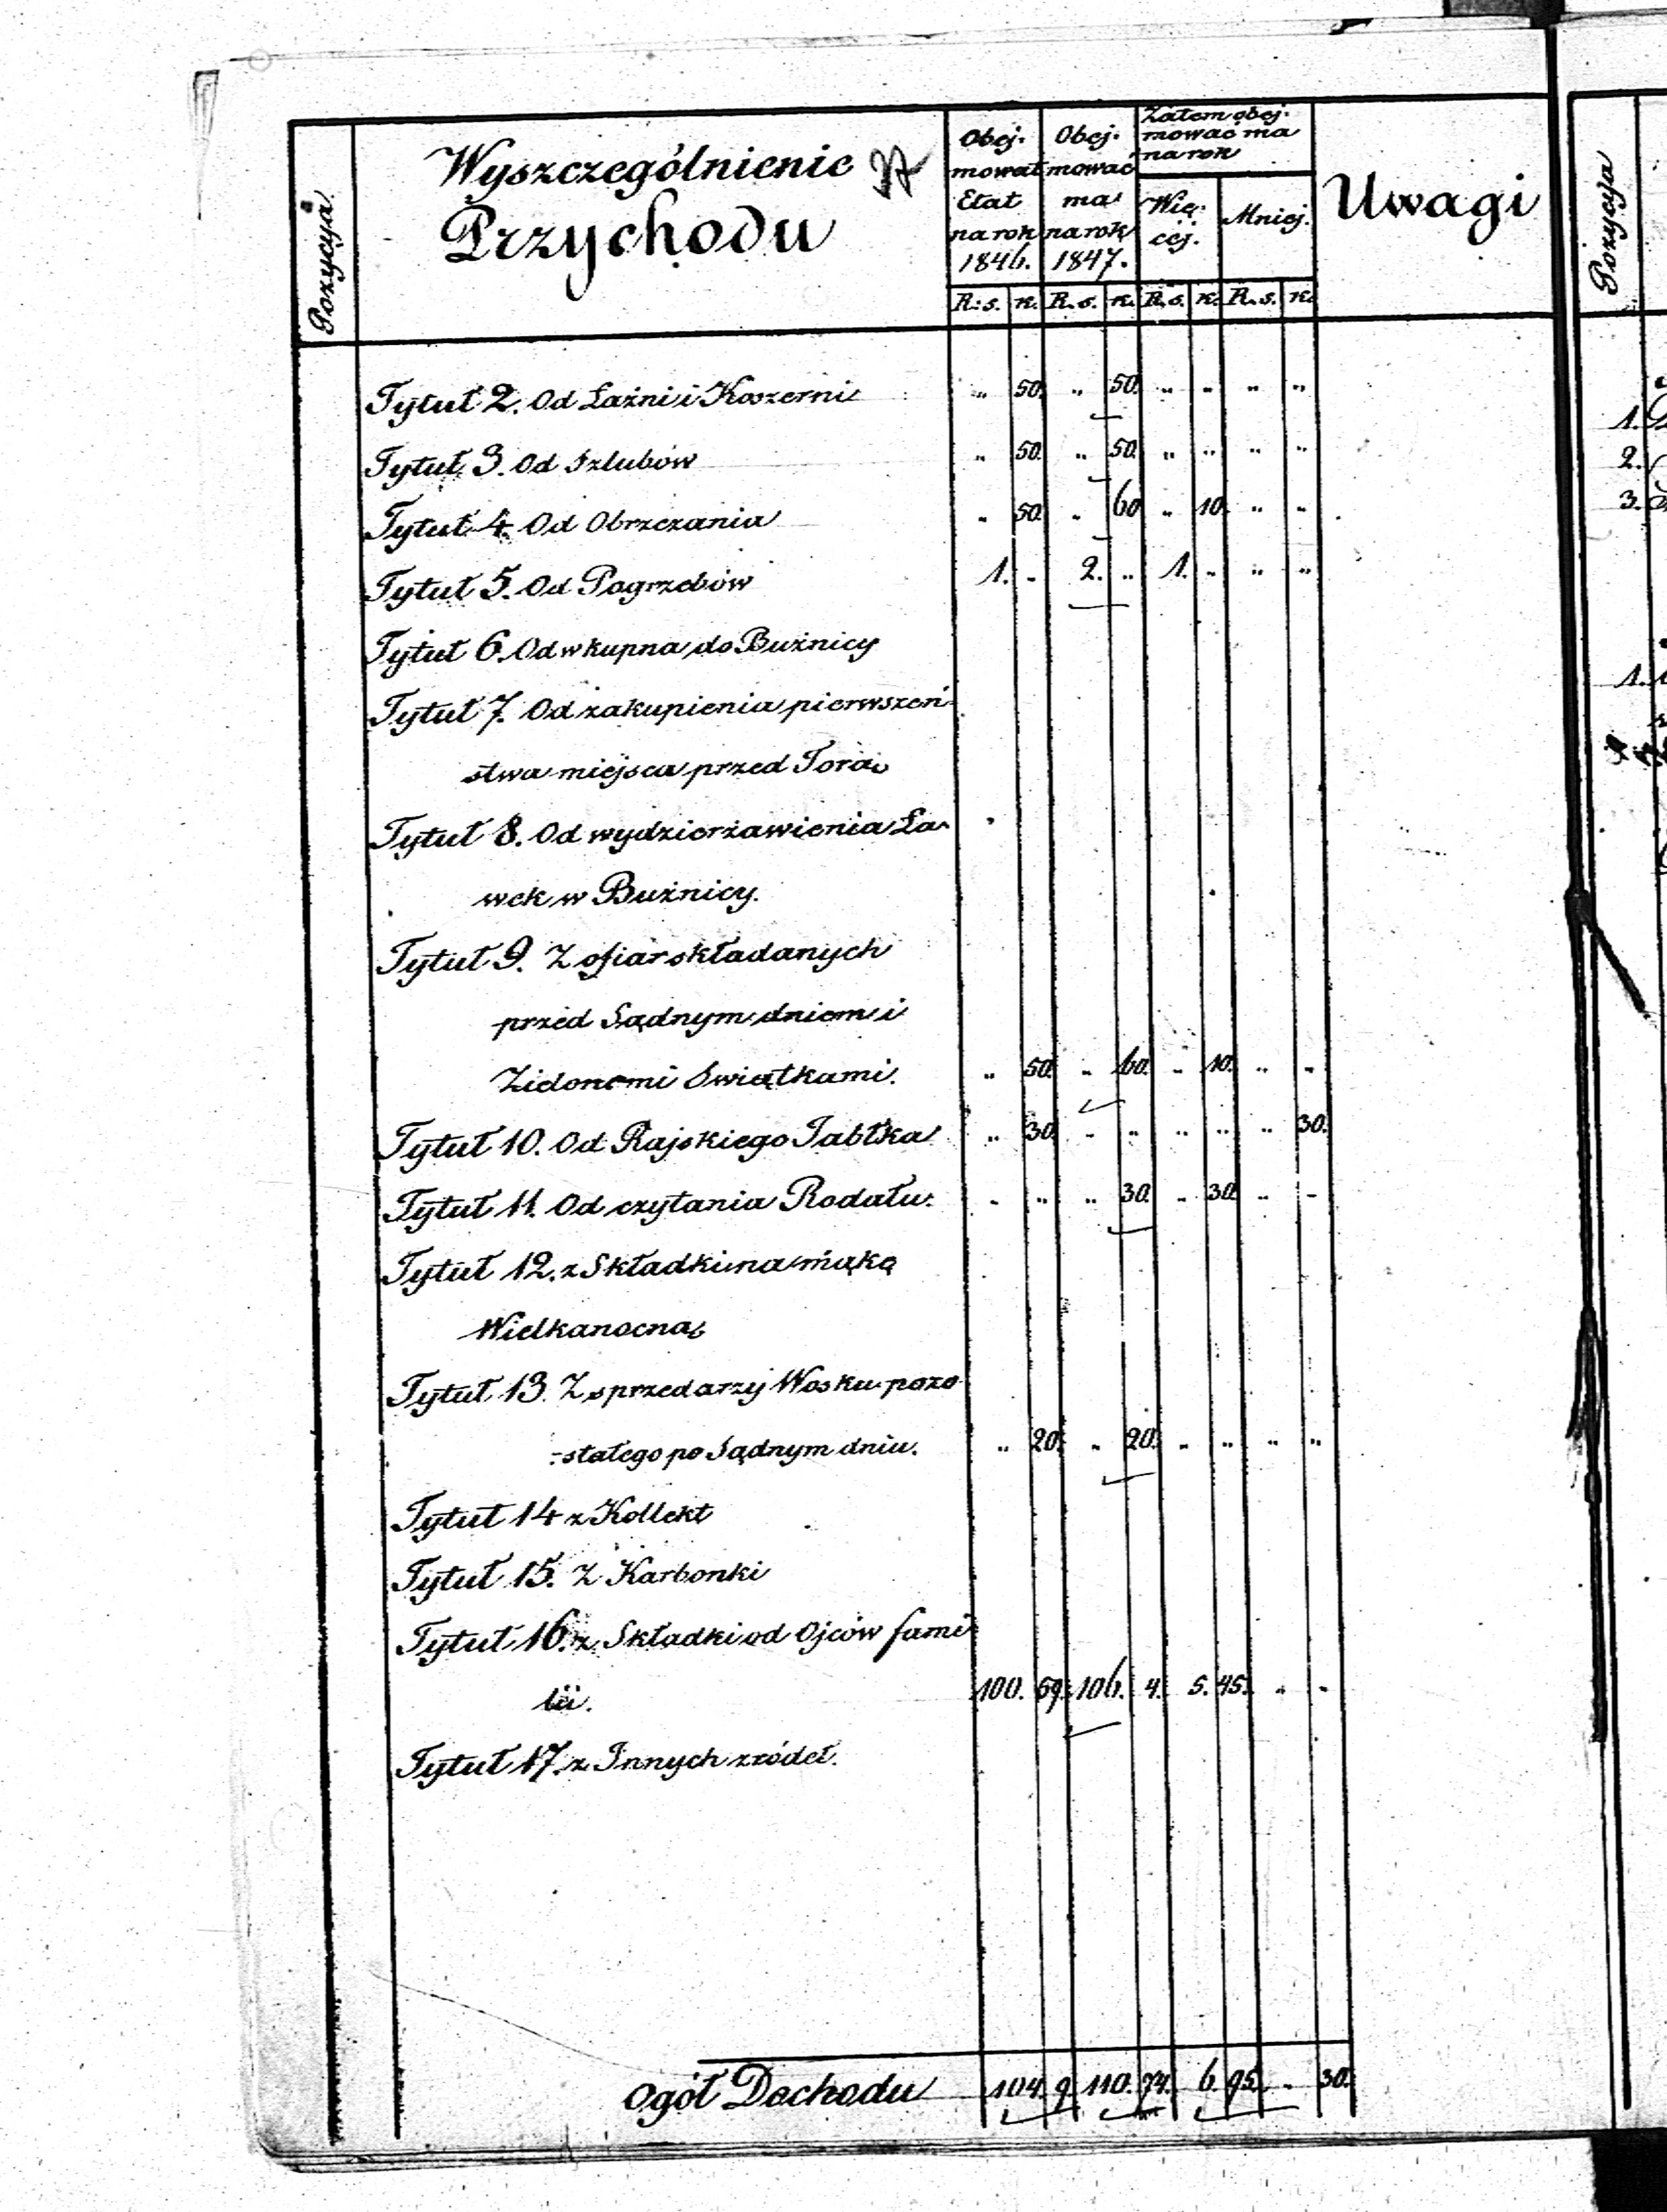 Pozycyja
Wyszczególnienie
Przychodu
Obej-
mował
Etat
na rok
1846.
Obej-
mować
ma
na rok
1847.
Zatem obej-
mować ma
na rok
Wię-
cej.
Mniej.
Uwagi
R. s. k. R. s. k. R. s. k. R. s. k.
Tytuł 2. Od Łaźni i Koszerni " 50. " 50. " " " "
Tytuł 3. Od Szlubów " 50. " 50. " " " "
Tytuł 4. Od Obrzezania " 50. " 60 " 10. " "
Tytuł 5. Od Pogrzebów 1. " 2. " 1. " " "
Tytuł 6. Od wkupna do Bużnicy
Tytuł 7. Od zakupienia pierwszeń-
stwa miejsca przed Torą
Tytuł 8. Od wydzierżawienia Ła-
wek w Bużnicy.
Tytuł 9. Z ofiar składanych
przed Sądnym dniem i
Zielonemi Swiątkami. " 50. " 60. " 10. " "
Tytuł 10. Od Rajskiego Jabłka " 30. " " " " " 30.
Tytuł 11. Od czytania Rodału. " " " 30. " 30. " "
Tytuł 12. z Składki na mąkę
Wielkanocną
Tytuł 13. Z sprzedarzy Wosku pozo-
stałego po Sądnym dniu. " 20. " 20. " " " "
Tytuł 14 z Kollekt
Tytuł 15. Z Karbonki
Tytuł 16. z Składki od Ojców fami-
lii. 100. 59. 106. 4. 5. 45. " "
Tytuł 17. z Innych zródeł.
Ogół Dochodu 104. 9. 110. 74. 6. 95. " 30.
Pozycyja
1.
2.
3.
1.